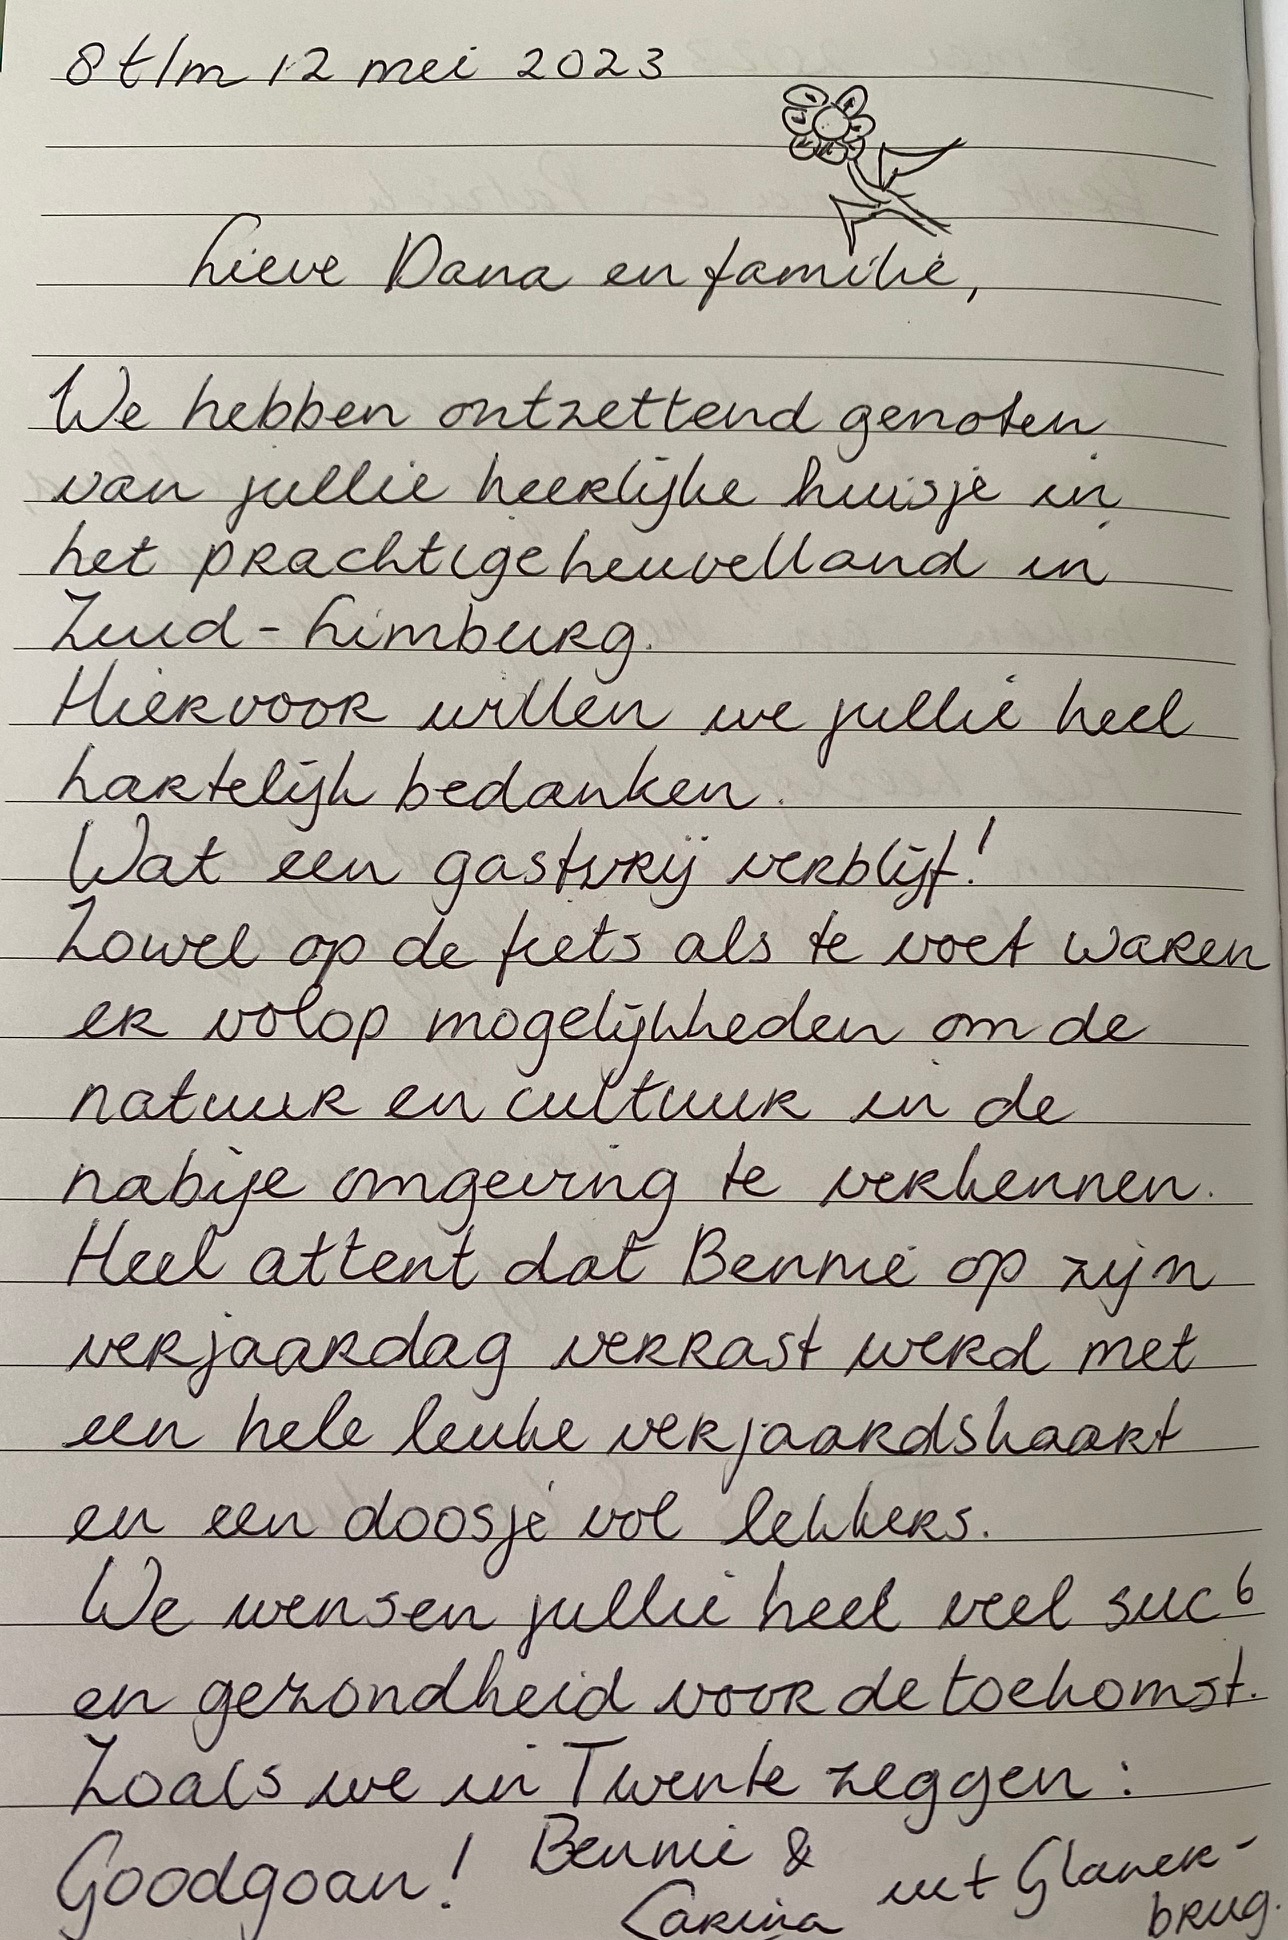 8 t/m 12 mei 2023
Lieve Dana en familie,
We hebben ontzettend genoten
van jullie heerlijke huisje in
het prachtige heuvelland in
Zuid-Limburg.
Hiervoor willen we jullie heel
hartelijk bedanken.
Wat een gastvrij verblijf!
Zowel op de fiets als te voet waren
er volop mogelijkheden om de
natuur en cultuur in de
nabije omgeving te verkennen.
Heel attent dat Bennie op zijn
verjaardag verrast werd met
een hele leuke verjaardskaart
en een doosje vol lekkers.
We wensen jullie heel veel suc6
en gezondheid voor de toekomst.
Zoals we in Twente zeggen:
Goodgoan! Bennie &
Carina uit Glaner-
brug.